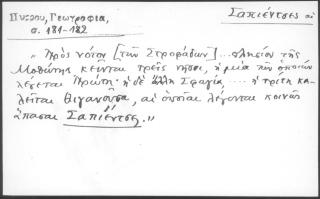 Πύρρου, Γεωγραφία,
σ. 181-182
Σαπιέντσες αι
„ Πρὸς νότον [τῶν Στροφάδων] ... πλησίον τῆς
Μοθώνης κεῖνται τρεῖς νῆσοι, ἡ μία τῶν ὁποίων
λέγεται Πρώτη· ἡ δὲ ἄλλη Σφαγία .... ἡ τρίτη κα-
λεῖται Θιγανοῦσα, αἱ ὁποῖαι λέγονται κοινῶς
ἅπασαι Σαπιέντσες. "